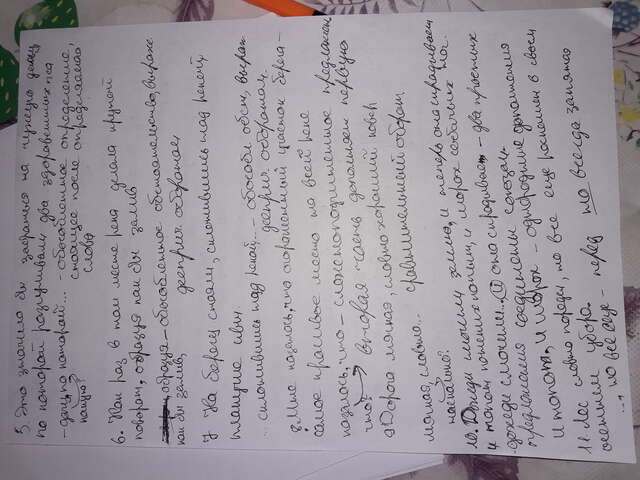 5. Это значило бы забраться на чужую дачу,
по которой разгуливали два здоровенных пса
- дачу, по которой... - обособленное определение,
какую? стоящее после определяемого
слова
6. Как раз в том месте река делала крутой
поворот, образуя как бы залив
образуя - обособленное обстоятельство, выраж
как бы залив, дееприч. оборотом
7 На берегу стояли, склонившись над рекой,
плакучие ивы
... склонившись над рекой... - обособл обст, выраж
дееприч. оборотом.
8. Мне казалось, что огороженный участок берега -
самое красивое место на всей реке
казалось, что - сложноподчиненное предложен
что? вторая часть дополняет первую
9 Дорога мягкая, словно хороший ковер
мягкая, словно... сравнительный оборот
насколько?
10. Дожди смочили землю, и теперь она скрадывает
и топот конских копыт, и шорох собачьих ног.
- дожди смочили... (и) она скрадывает - два простых
предложения соединены союзом
и топот, и шорох - однородные дополнения
11 Лес словно поредел, но все еще роскошен в своем
осеннем уборе.
..., но все еще - перед но всегда запятая